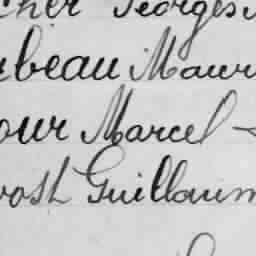 cher Georges
rbeau Mauri
our Marcel
vosh Guillaum